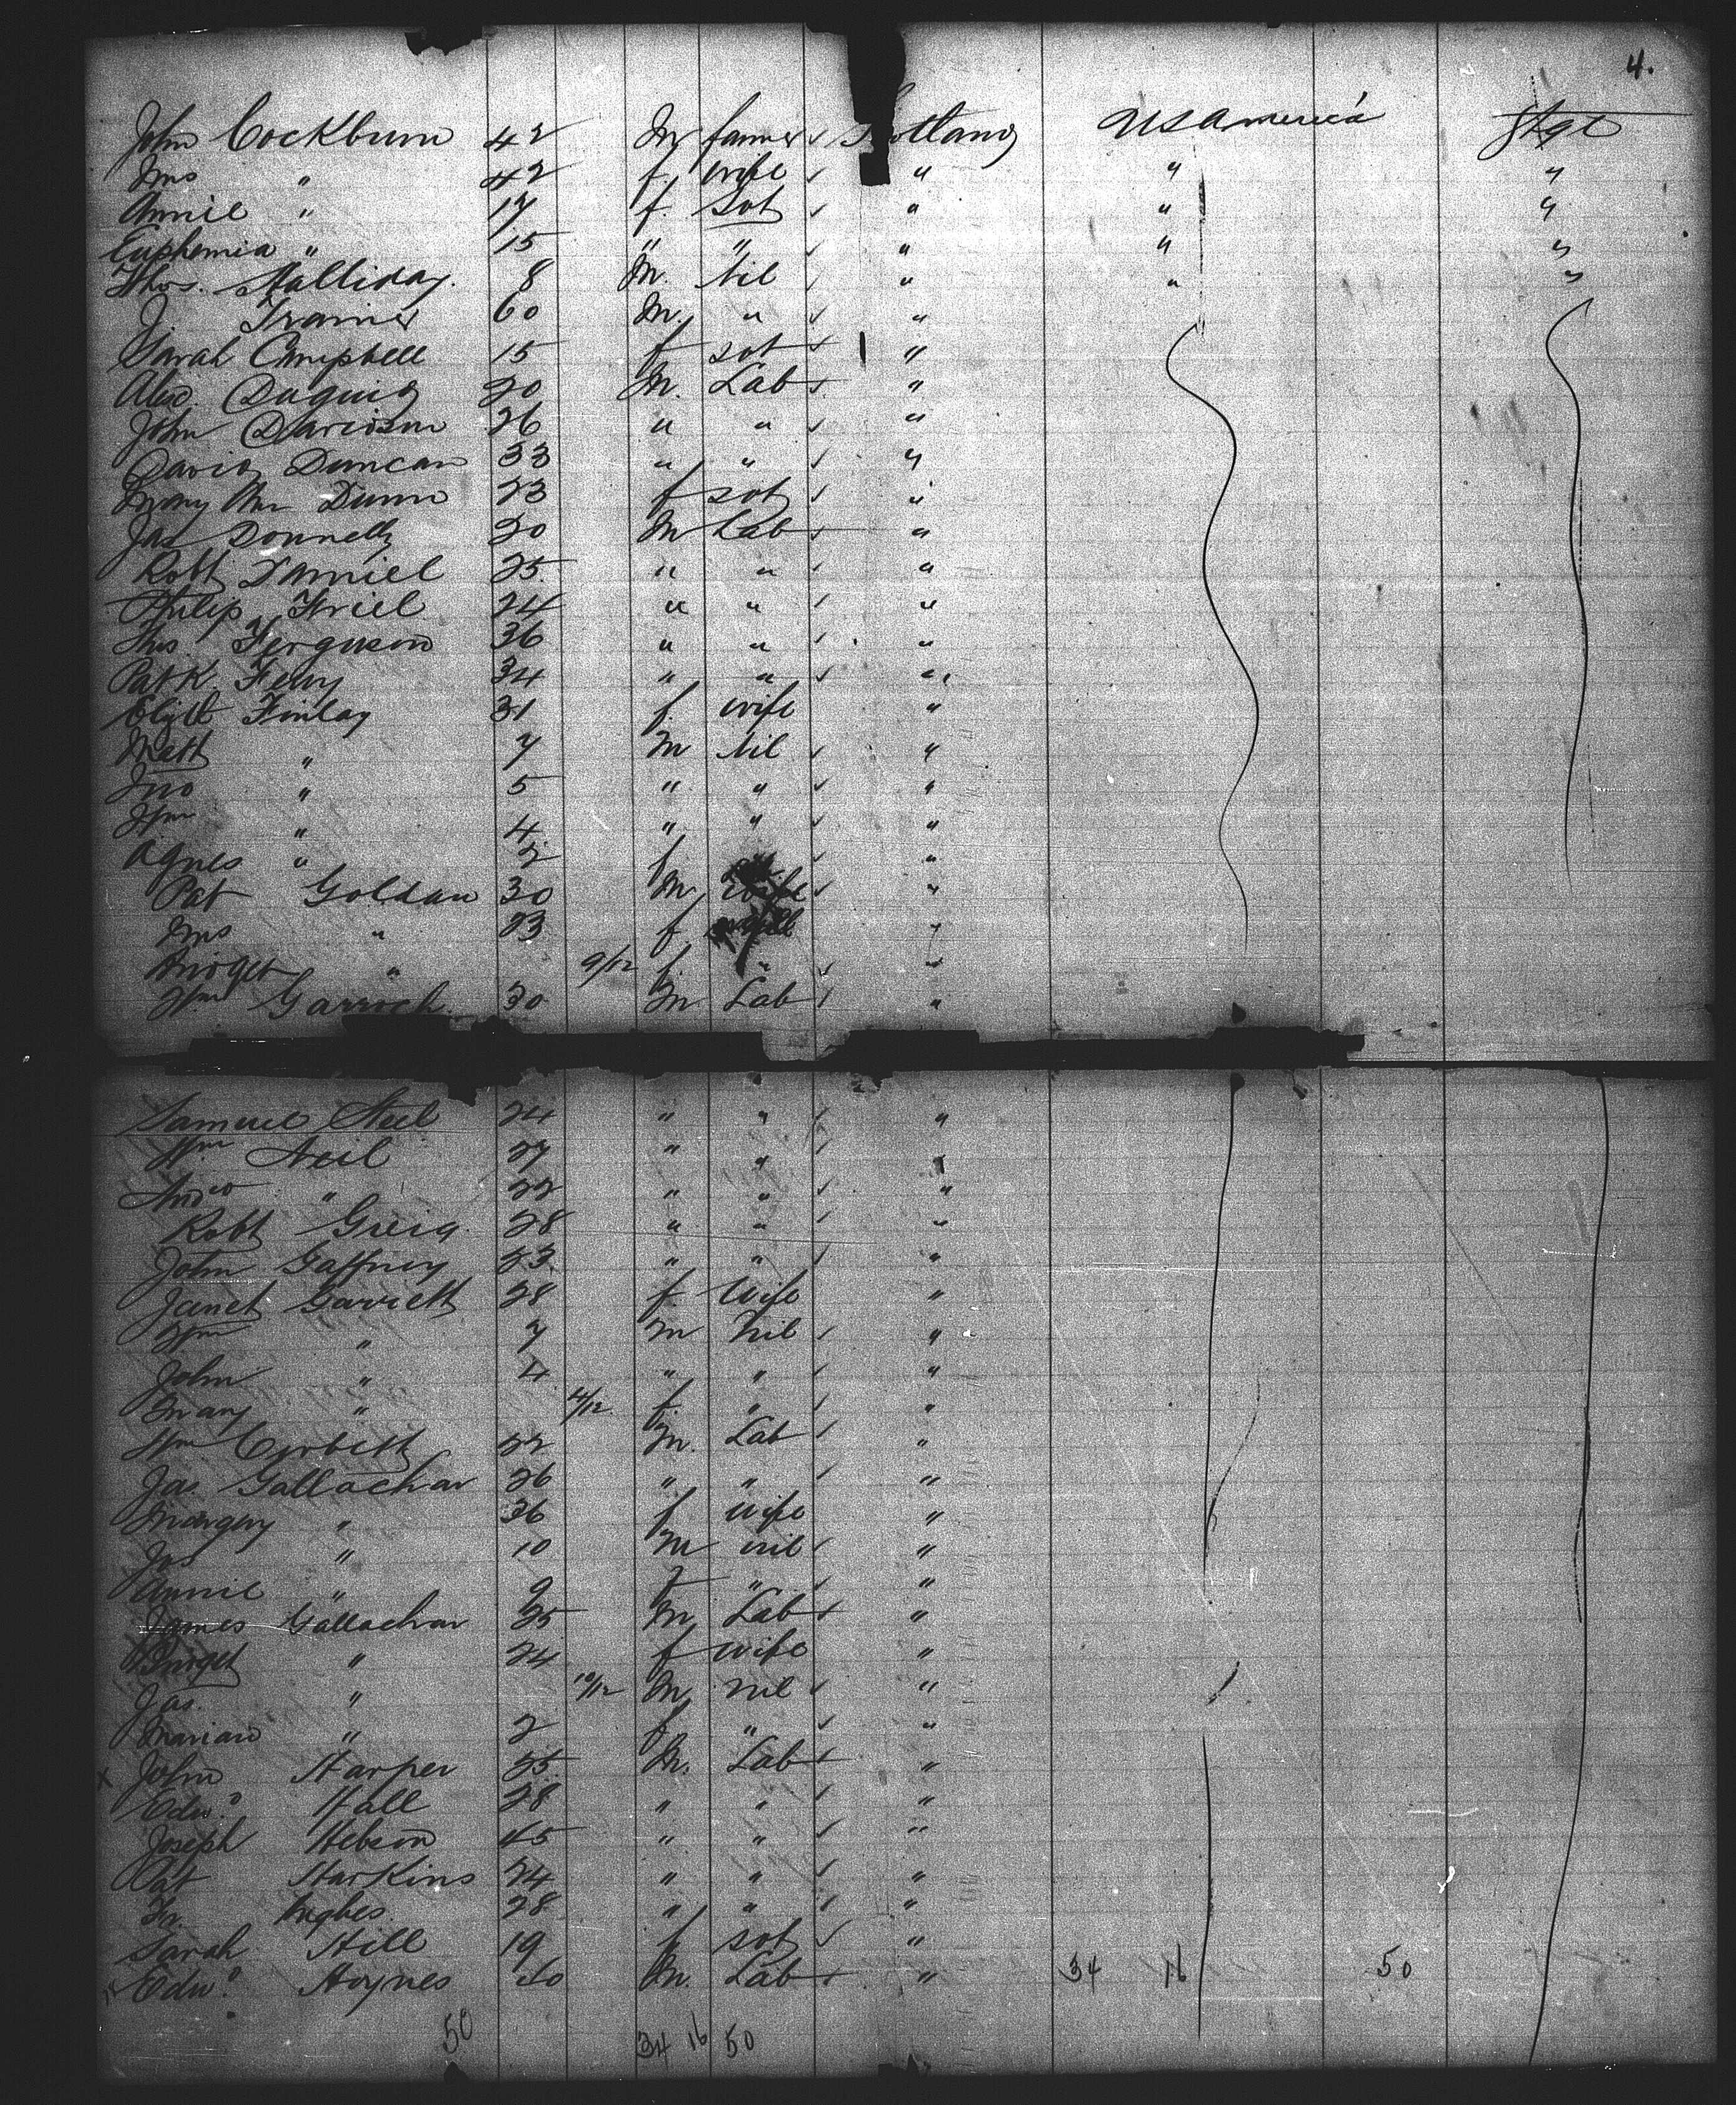 4.
John Cockburn 42 M farmer Scotland U S America Stge
Mrs " 42 f. wife " " "
Annie " 17 f. Sot " " "
Euphemia " 15 " " " " "
Thos. Halliday. 8 M. Nil " " "
J Trainer 60 M. " "
Sarah Campbell 15 f sot "
Alex. Duguid 20 M. Lab "
John Davidson 26 " " "
David Duncan 33 " " "
Mary Dunn 23 f sot "
Jas Donnelly 20 M Lab "
Robt Daniel 25. " " "
Philip Friel 24 " " "
Ferguson 36 " " "
Patk Ferry 34 " " "
Elizth Finlay 31 f. wife "
Matt " 7 M Nil "
Jno " 5 " " "
Wm " 4 " " "
Agnes " 2 f. "
Pat Goldan 30 M "
Mrs " 23 f "
Bridget " 9/12 f. " "
Wm Garroch. 30 M. Lab "
Samuel 24 " " "
Wm Neil 27 " " "
Andw " 22 " " "
Robt Greig. 28 " " "
John Gaffney 23. " " "
Janet Garrett 28 f. Wife "
Wm " 7 M Nil "
John " 4 " " "
Mary " 4/12. f. " "
Wm Corbett 22 M. Lab "
Jas. Gallachar 26 " " "
Margery " 36 f wife "
Jas " 10 M nil "
Annie " 9 f " "
James Gallachar 25 M Lab "
Bridget " 24 f wife "
Jas. " 10/12 M nil "
Marian " 2 f " "
x John Harper 25. M. Lab "
Edwd. Hall 28 " " "
Joseph Hebson 45 " " "
Pat Harkins 24 " " "
Hughes 28 " " "
Sarah Hill 19 f sot "
Edwd. Hoynes 20 M. Lab " 34 16 50
50 34 16 50